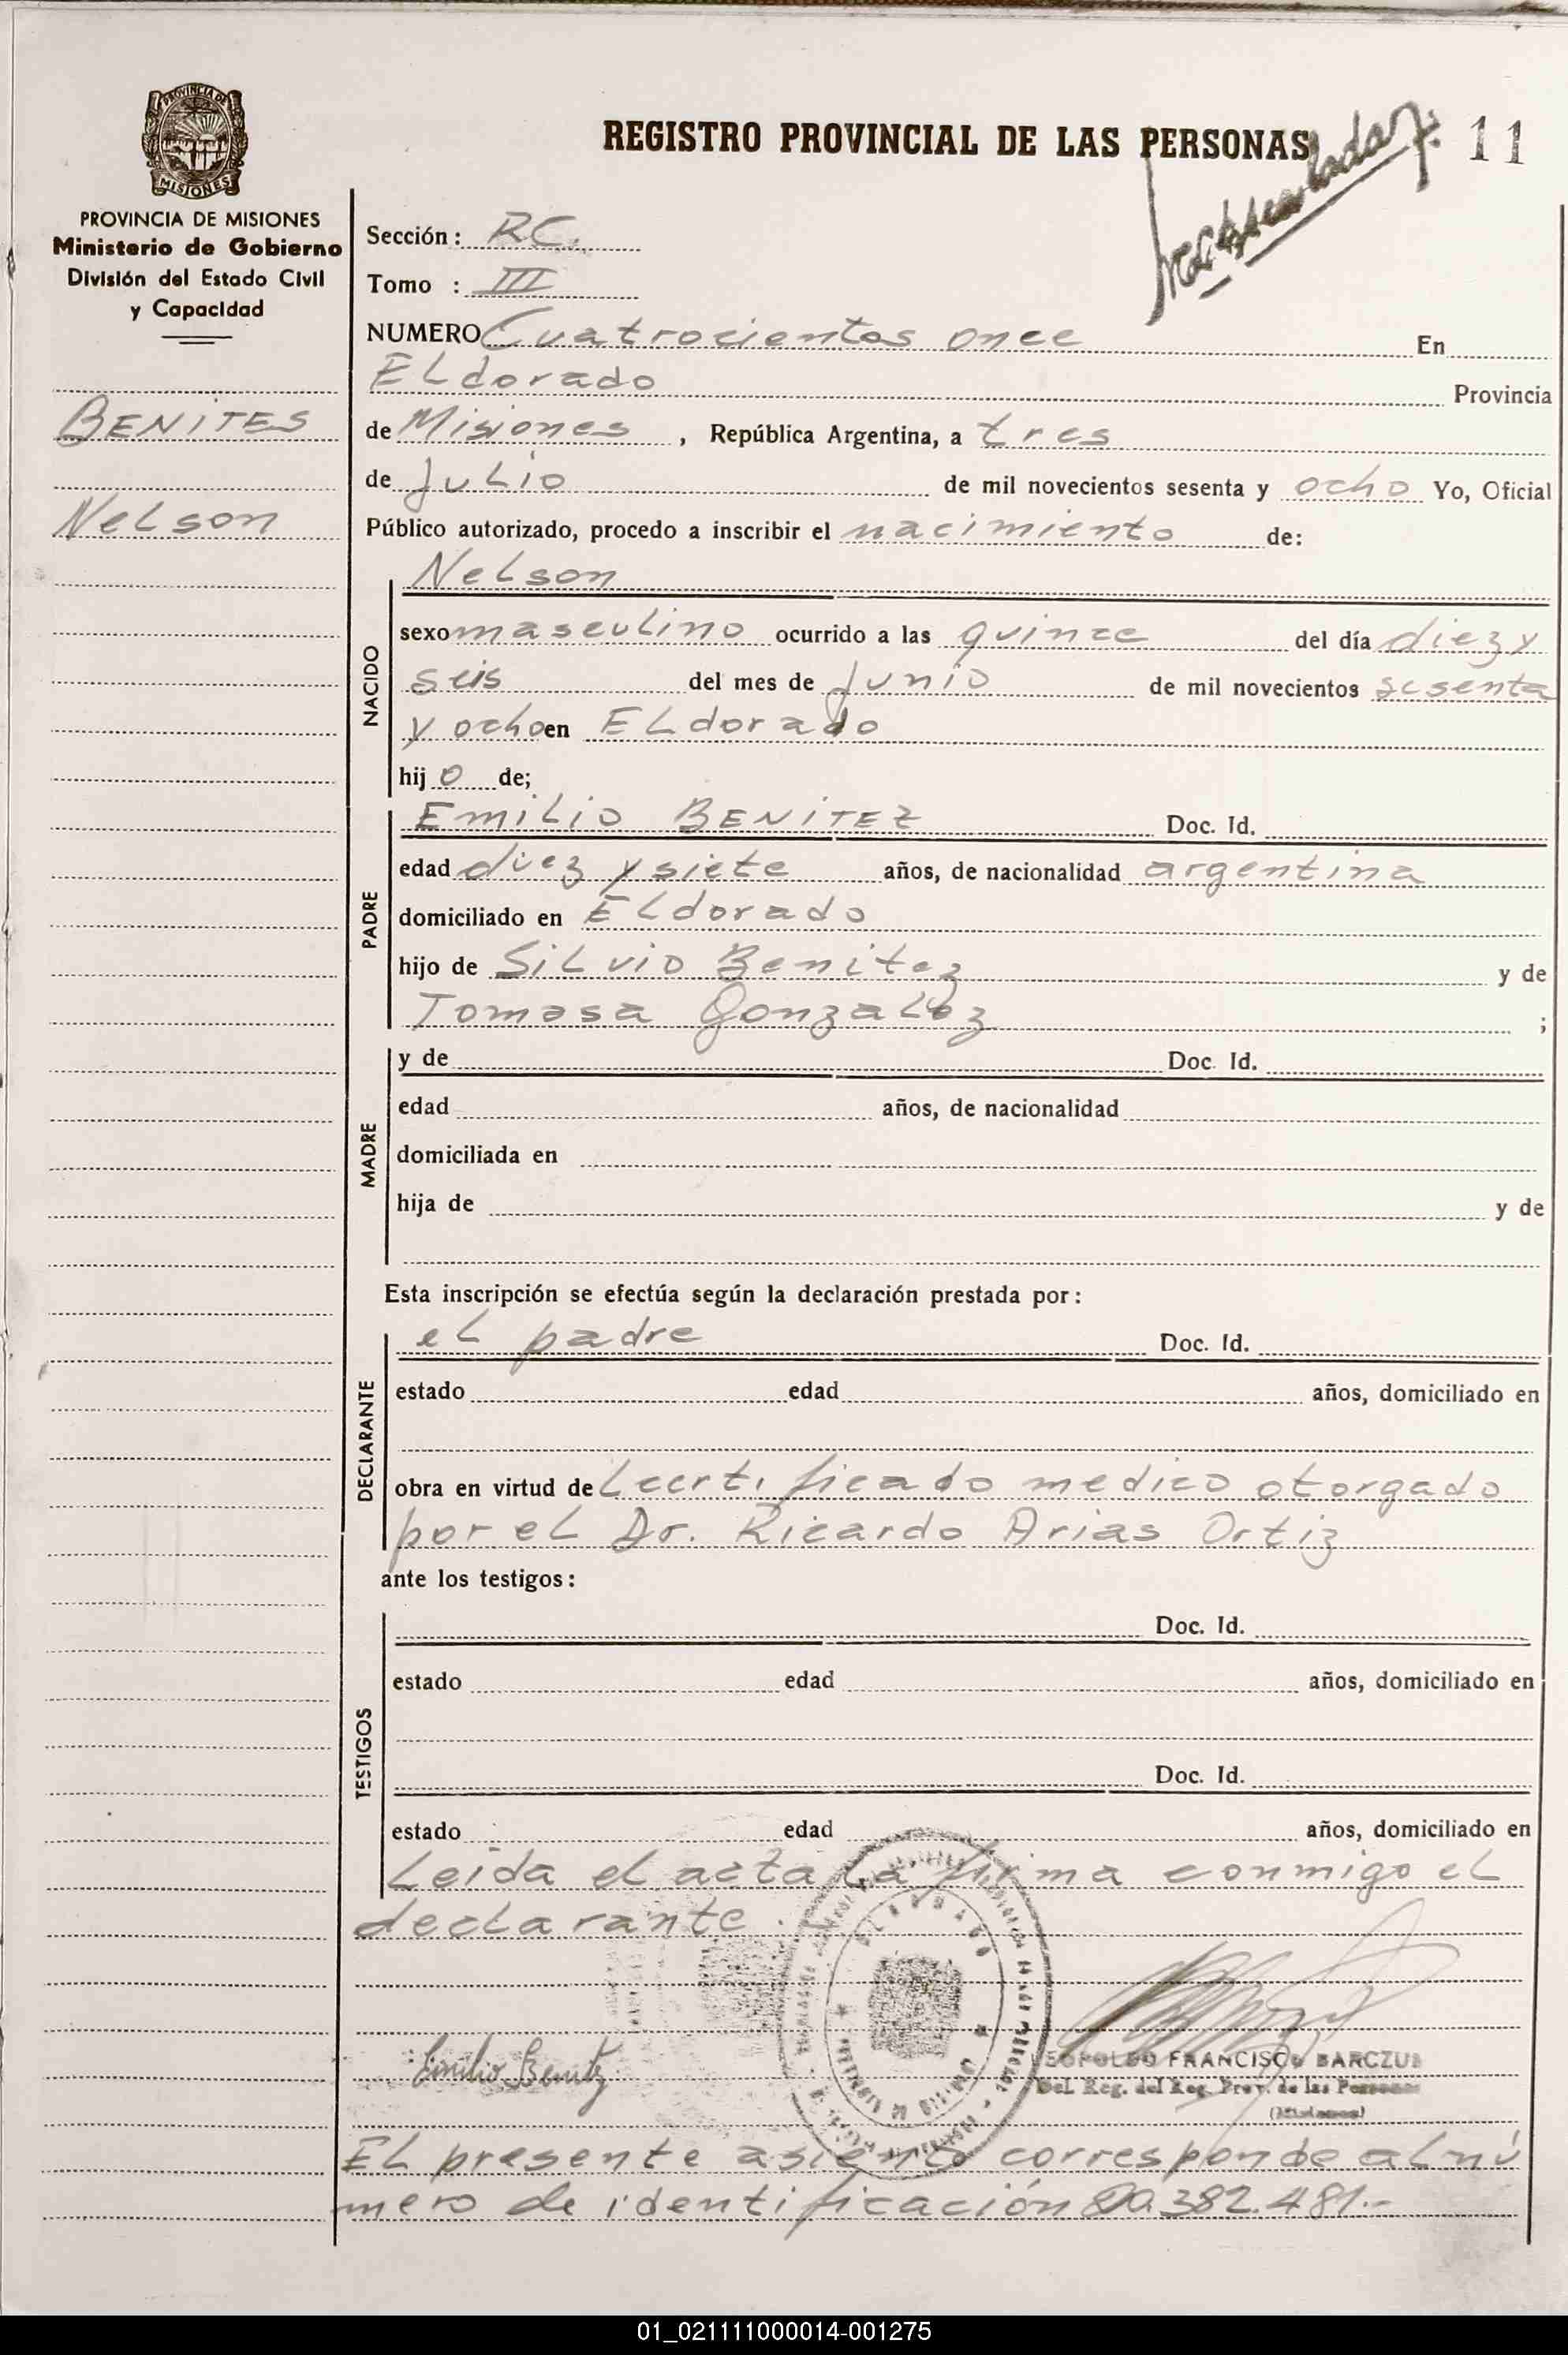 REGISTRO PROVINCIAL DE LAS PERSONAS
11
PROVINCIA DE MISIONES
PROVINCIA DE MISIONES
Ministerio de Gobierno
División del Estado Civil
y Capacidad
BENITES
Nelson
Sección: RC.
Tomo : III
NUMERO Cuatrocientos once En
ELdorado Provincia
de Misiones, República Argentina, a tres
de Julio de mil novecientos sesenta y ocho Yo, Oficial
Público autorizado, procedo a inscribir el nacimiento de:
NACIDO
Nelson
sexo masculino ocurrido a las quince del día diez y
seis del mes de Junio de mil novecientos sesenta
y ocho en ELdorado
hijo de;
PADRE
Emilio BENITEZ Doc. Id.
edad diez y siete años, de nacionalidad argentina
domiciliado en ELdorado
hijo de SiLvio Benitez y de
Tomasa Gonzalez ;
MADRE
y de Doc. Id.
edad años, de nacionalidad
domiciliada en
hija de y de
Esta inscripción se efectúa según la declaración prestada por:
DECLARANTE
el padre Doc. Id.
estado edad años, domiciliado en
obra en virtud de certificado medico otorgado
por el Dr. Ricardo Arias Ortiz
ante los testigos:
TESTIGOS
Doc. Id.
estado edad años, domiciliado en
Doc. Id.
estado edad años, domiciliado en
Leida el acta la firma conmigo el
declarante.
ELDORADO
Emilio Benitez
LEOPOLDO FRANCISCO BARCZUK
Del. Reg. del Reg. Prov. de las Personas
(Misiones)
EL presente asiento corresponde al nú
mero de identificación 20.382.481.-
01_021111000014-001275